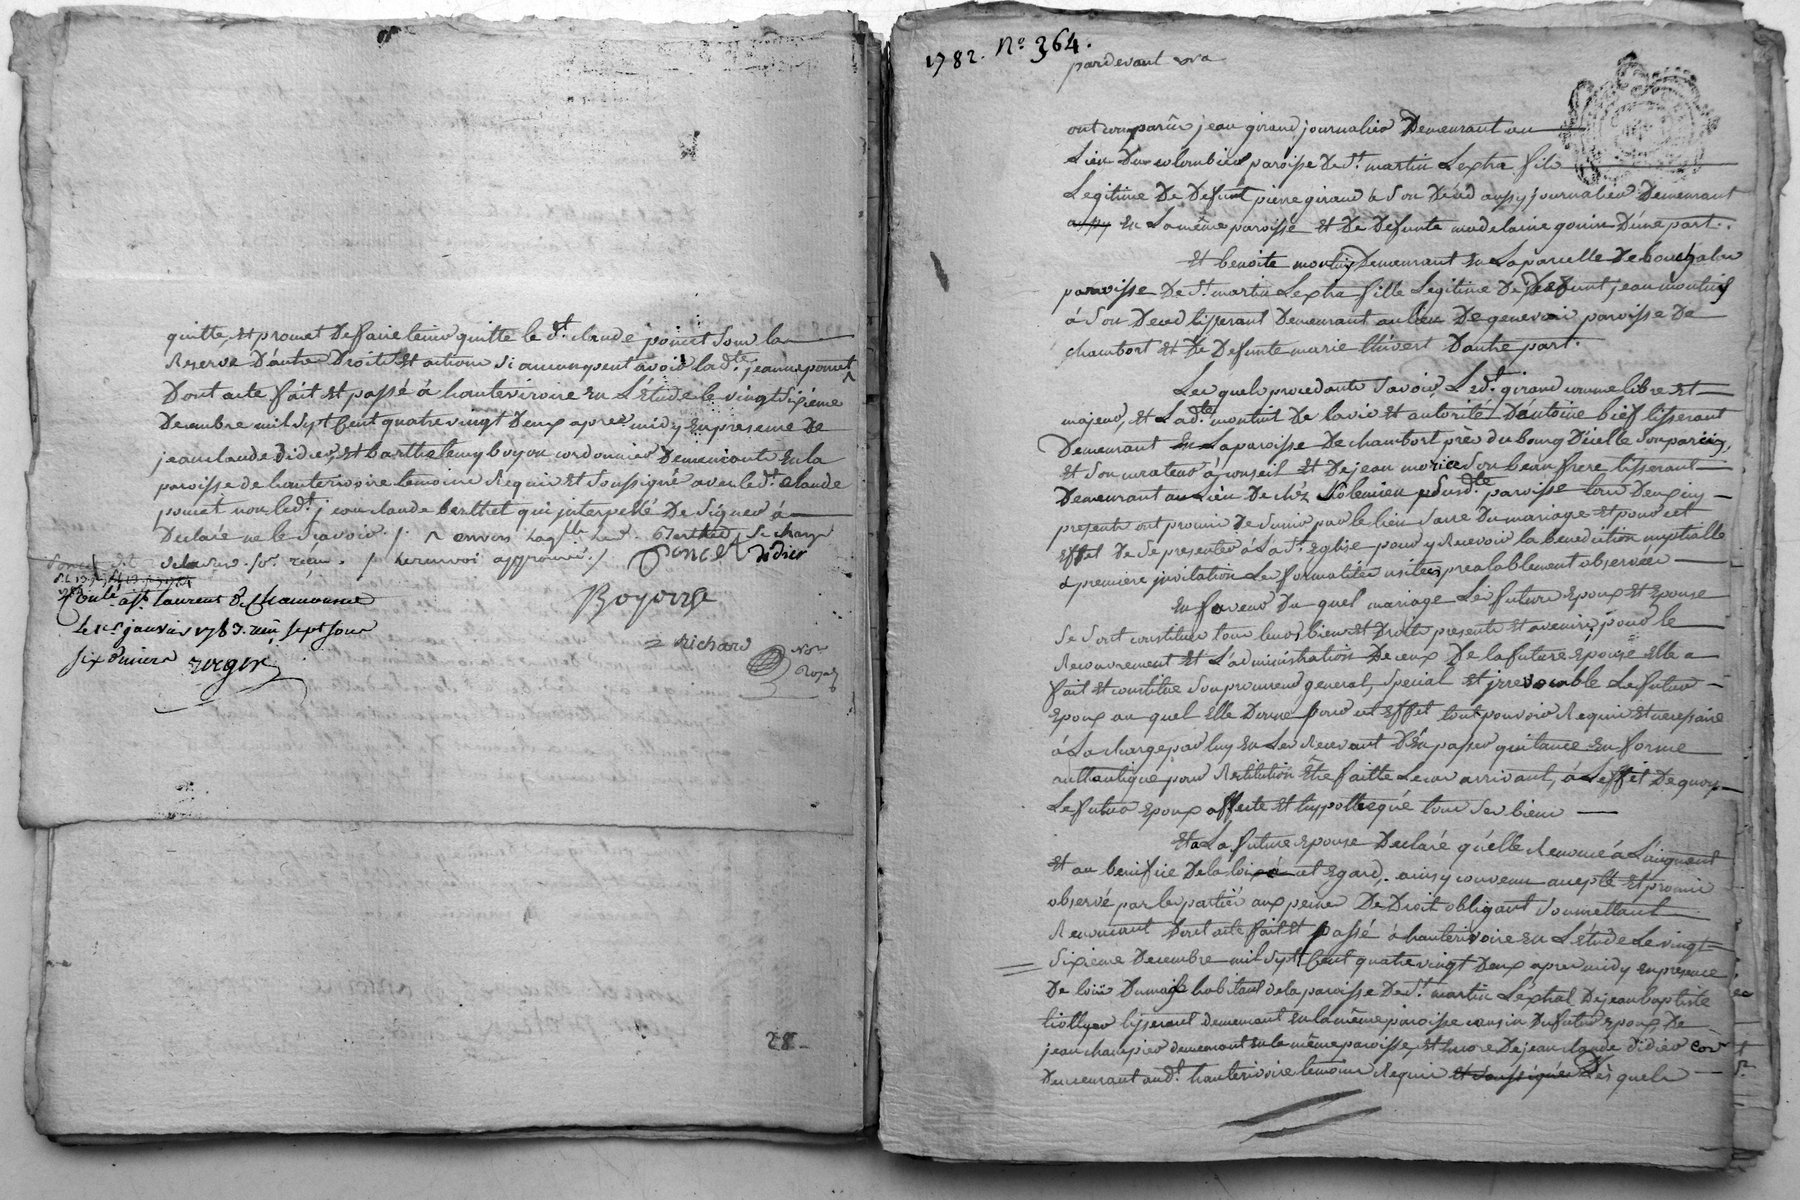 quitte et promet de faire tenir quitte le dt. claude poncet sous la
Reserve D'autre Droits et actions si aucuns peut avoir lade. jeanne poncet
Dont acte fait et passé à hauterivoire en L'étude le vingt sixieme
Decembre mil sept Cent quatre vingt Deux apres midy en presence De
jean claude Didier, et barthelemy boyou cordonniers Demeurants en la
paroisse de hauterivoire temoins Requis et soussigné avec led. claude
poncet non led. jean claude berthet qui interpellé De Signer à
Declaré ne le sçavoir /.
renvoi approuvé /.
Poncet Didier
Boyou
Richard
Nore
Royal
Conlé à St. laurent D. Chamousset
le 1er janvier 1783. reçu sept sous
six deniers roger
28
1782. No 364.
pardevant
ont comparûs jean giraud journalier Demeurant au
Lieu Du colombier paroisse De St. martin Lextra fils
Legitime De Defunt pierre giraud à Son Déced aussy journalier Demeurant
aussy en La même paroisse et De Defunte madelaine gonin D'une part.
Et benoite montus Demeurant en La parcelle De
paroisse De St. martin Lextra fille Legitime De Defunt jean montus
à Son Deced tisserant Demeurant au lieu De paroisse De
chambost et De Defunte marie thivert D'autre part.
Lesquels procedants Savoir, Led. giraud comme libre et
majeur, et Lade. montus De lavis et autorité D'antoine bief tisserant
Demeurant en La paroisse De chambost près du bourg D'icelle Son parein,
et Son curateur à conseil et De jean Son beau frere tisserant
Demeurant au Lieu De chéz susde. paroisse tous Deux icy
presents ont promis De S'unir par le lien Sacré Du mariage et pour cet
Effet De Se presenter à La Ste. Eglise pour y Recevoir la benediction nuptialle
à premiere invitation Les formalités usitées prealablement observées
En faveur Du quel mariage Les futurs Epoux et Epouse
Se Sont constitués tous leurs biens et Droits presents et avenirs, pour le
Recouvrement et L'administration De ceux De la future Epouse elle a
fait et constitué Son procureur general, Special et irrevocable Le futur
Epoux au quel Elle Donne pour cet Effet tout pouvoir Requis et necessaire
à La charge par luy en Les Recevant D'en passer quitance en forme
authantique pour Restitution être faitte Le cas arrivant, à L'effet De quoy
Le futur Epoux affecte et hypotheque tous Ses biens
Et a La future epouse Declaré qu'elle Renonce à L'augment
et au benifice De la loi à cet Egard. ainsy convenu accepté et promis
observé par les parties aux peines De Droit obligeant Soumettant
Renonçant Dont acte fait et passé à hauterivoire en L'étude Le vingt
Sixieme Decembre mil Sept Cent quatre vingt Deux apres midy en presence
De loüis Dumas habitant de la paroisse De St. martin Lextra De jean baptiste
tisserant demeurant en la même paroisse cousin Du futur epoux De
jean champier demeurant en la même paroisse, et encore De jean claude Didier cor
Demeurant aud. hauterivoire temoins Requis et soussignés Lesquels